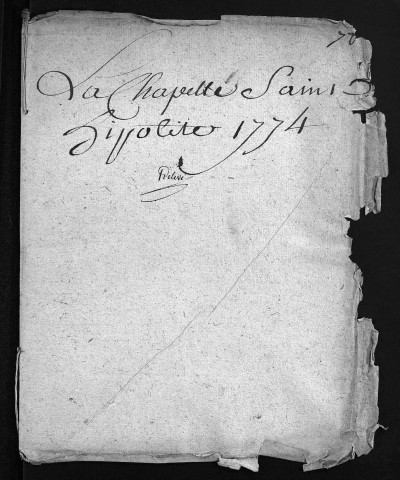 La Chapelle Saint
hippolite 1774